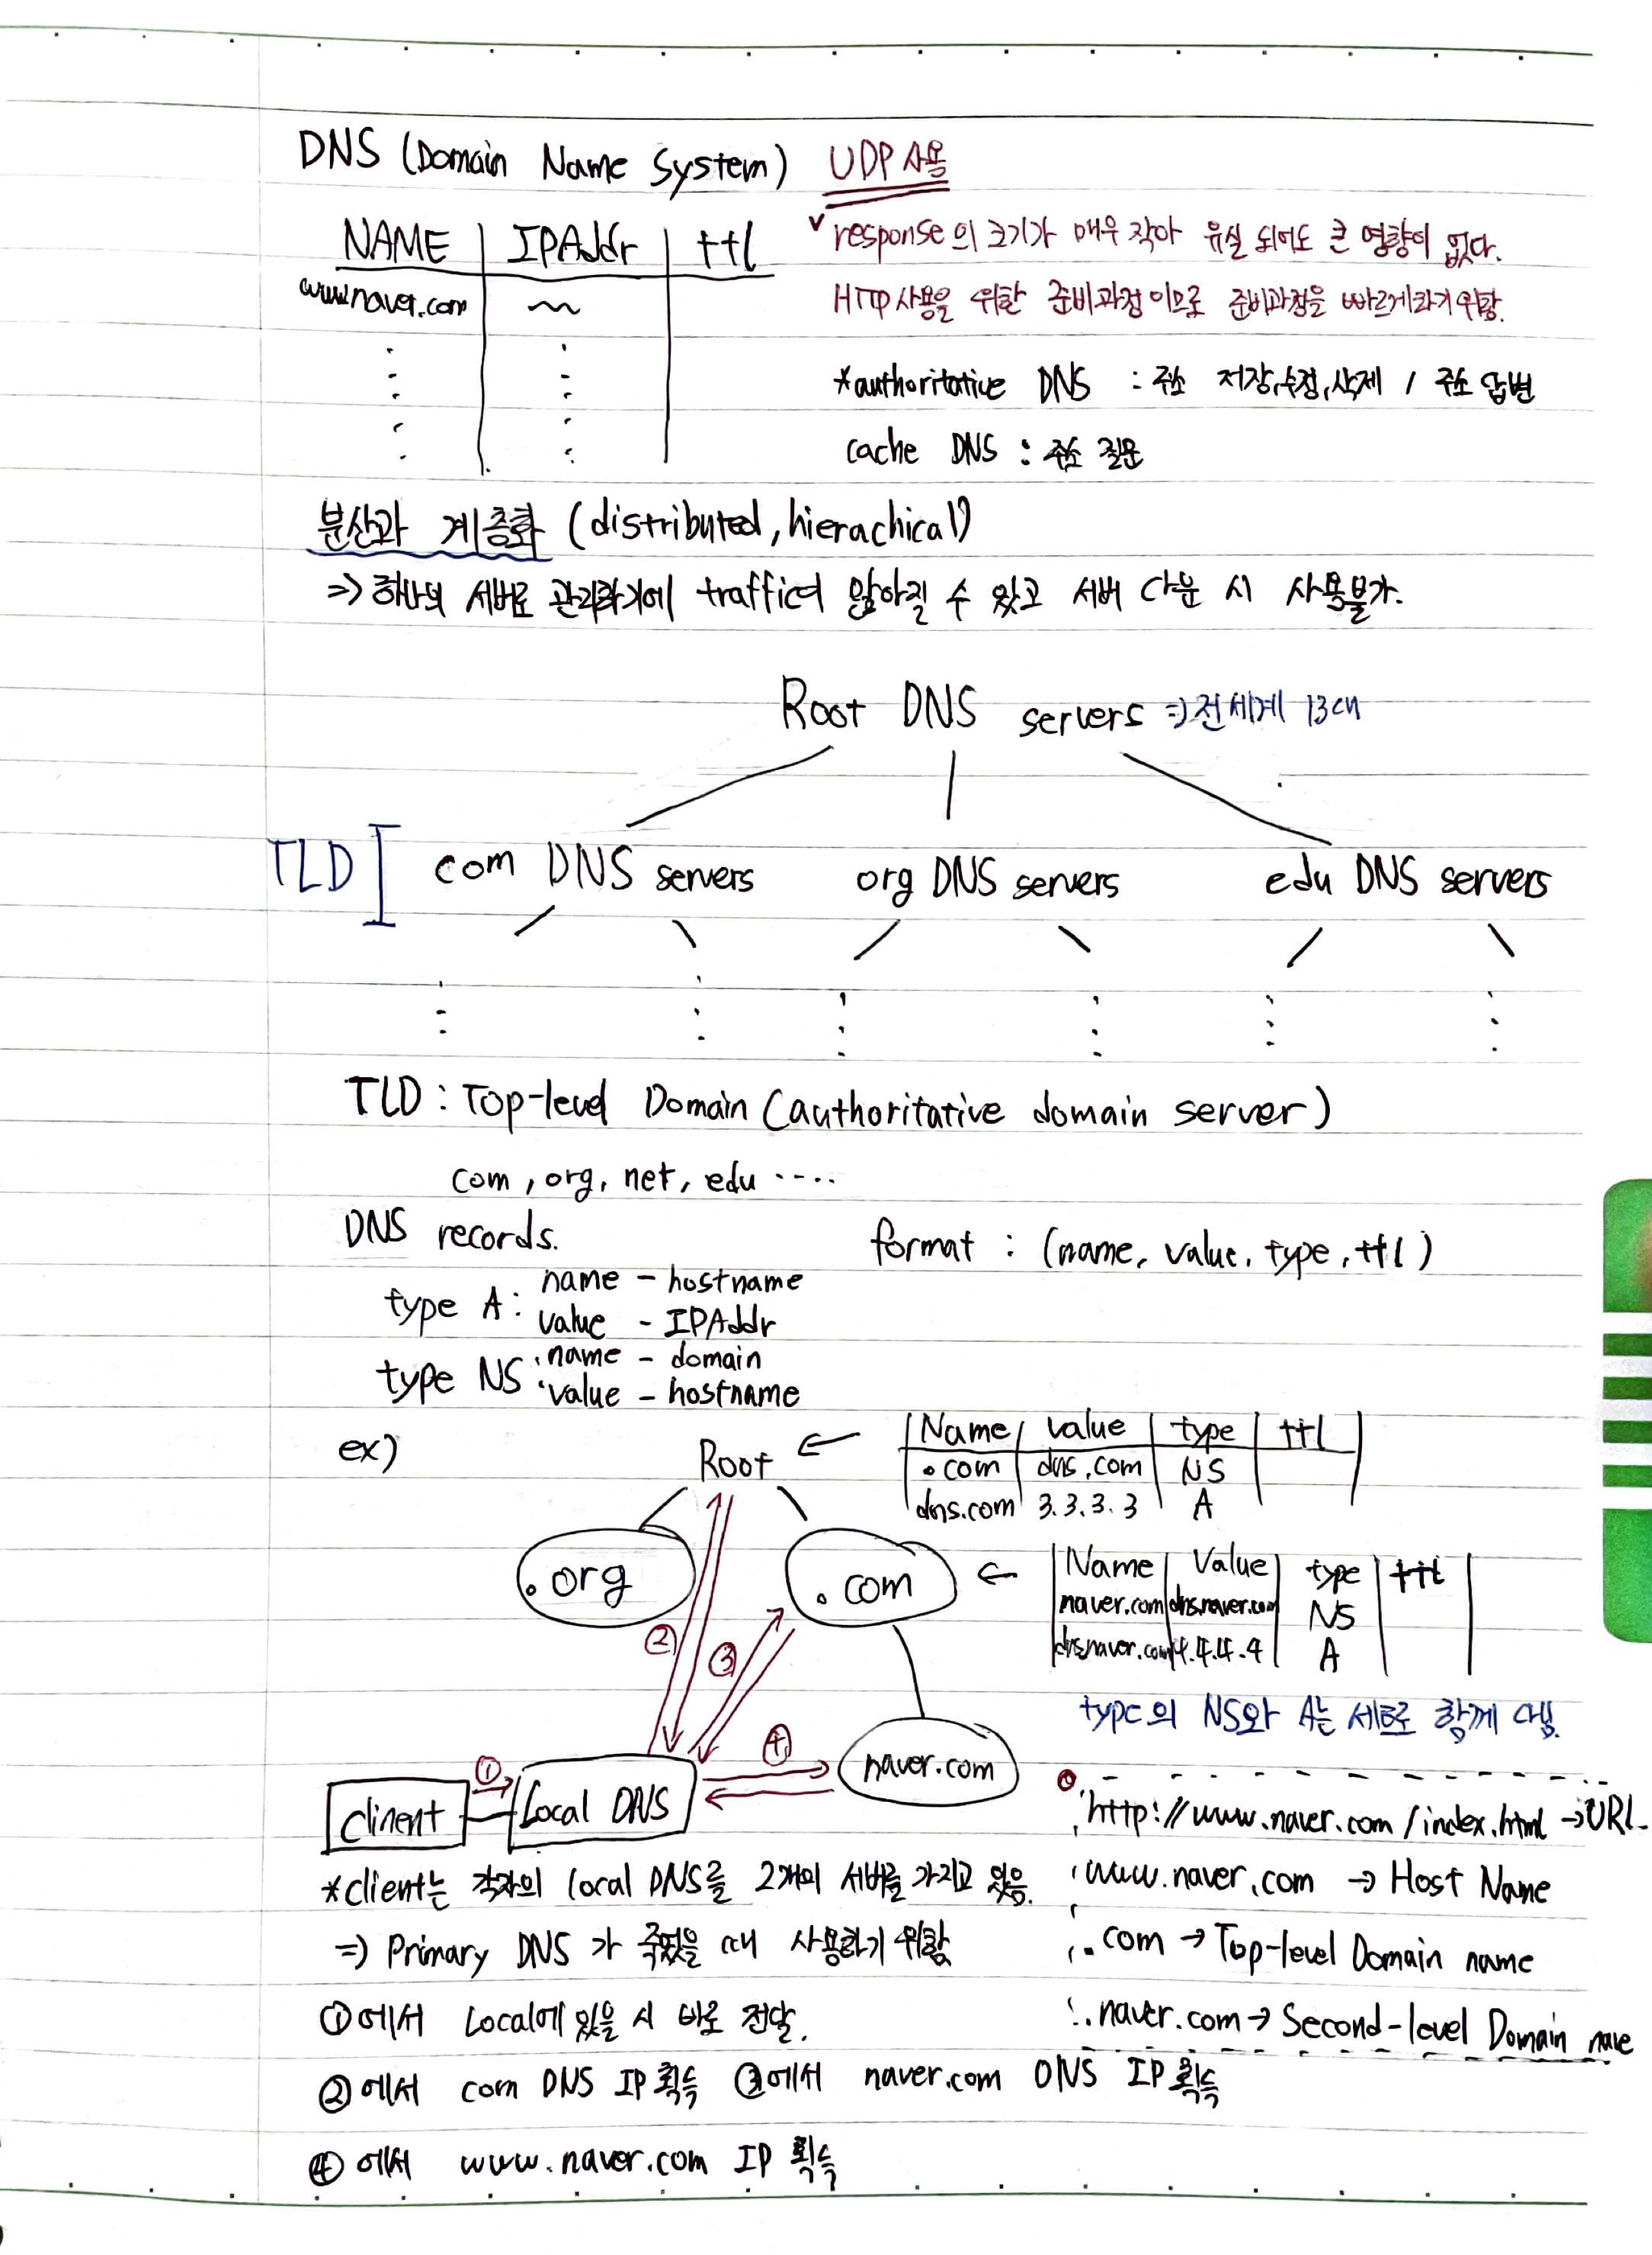 DNS (Domain Name System) UDP 사용
NAME | IPAddr | ttl
www.naver.com ~
✓ response의 크기가 매우 작아 유실 되어도 큰 영향이 없다.
HTTP사용을 위한 준비과정이므로 준비과정을 빠르게하기 위함.
*authoritative DNS : 주소 저장,수정,삭제 / 주소 답변
cache DNS : 주소 질문
분산과 계층화 (distributed, hierachical)
=> 하나의 서버로 관리하기에 traffic이 많아질 수 있고 서버 다운 시 사용불가.
Root DNS servers => 전세계 13대
TLD
com DNS servers org DNS servers edu DNS servers
TLD : Top-level Domain (authoritative domain server)
com, org, net, edu ....
DNS records. format : (name, value, type, ttl)
type A : name - hostname
value - IPAddr
type NS : name - domain
value - hostname
ex)
Root ← | Name | value | type | ttl |
.com | dns.com | NS
dns.com | 3.3.3.3 | A
.org .com ← | Name | Value | type | ttl |
naver.com | dns.naver.com | NS
dns.naver.com | 4.4.4.4 | A
② ③
type의 NS와 A는 세트로 함께 다님.
① ④ naver.com
clinent Local DNS
http://www.naver.com/index.html → URL
www.naver.com → Host Name
.com → Top-level Domain name
.naver.com → Second-level Domain name
*client는 각자의 local DNS를 2개의 서버를 가지고 있음.
=> Primary DNS 가 죽었을 때 사용하기 위함
①에서 Local에 있을 시 바로 전달.
②에서 com DNS IP 획득 ③에서 naver.com DNS IP 획득
④에서 www.naver.com IP 획득